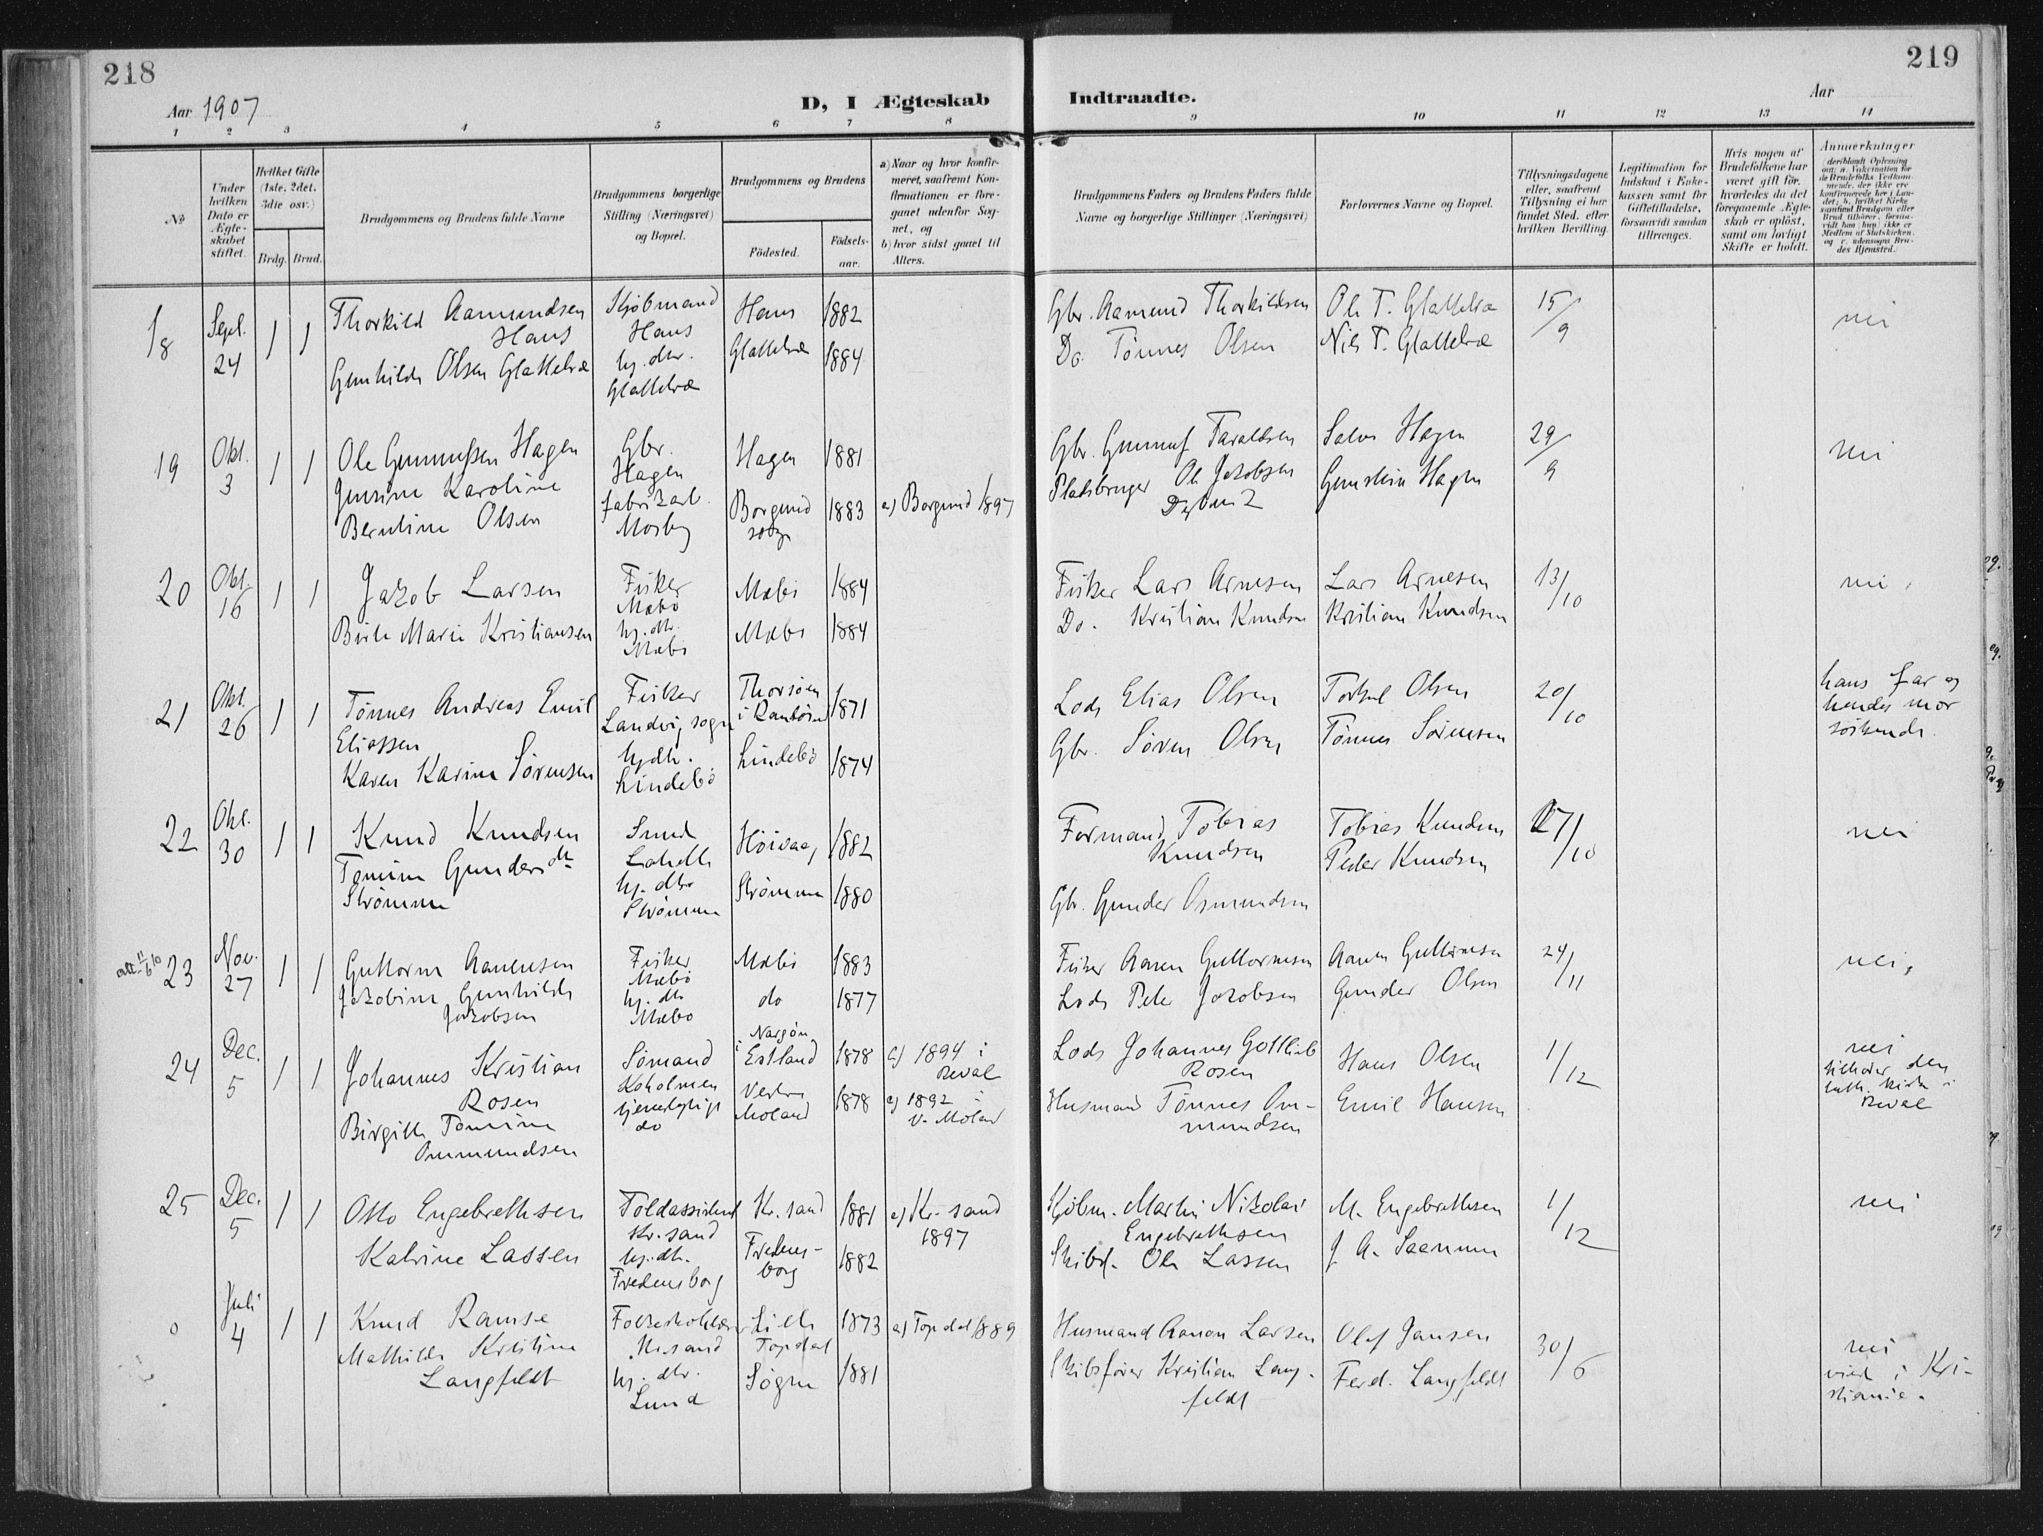 218
219
Aar 1907
D, I Ægteskab Indtraadte.
Aar
1 2 3 4 5 6 7 8 9 10 11 12 13 14
No
Under hvilken Dato er Ægteskabet stiftet.
Hvilket Gifte (1ste, 2det, 3die osv.)
Brdg. Brud.
Brudgommens og Brudens fulde Navne
Brudgommens borgerlige Stilling (Næringsvei) og Bopæl.
Brudgommens og Brudens
Födested.
Födselsaar.
a) Naar og hvor konfirmeret, saafremt Konfirmationen er foregaaet udenfor Sognet, og
b) hvor sidst gaaet til Alters.
Brudgommens Faders og Brudens Faders fulde Navne og borgerlige Stillinger (Næringsvei)
Forlovernes Navne og Bopæl.
Tillysningsdagene eller, saafremt Tillysning ei har fundet Sted, efter hvilken Bevilling.
Legitimation for Indskud i Enkekassen samt for Giftetilladelse, forsaavidt saadan tiltrænges.
Hvis nogen af Brudefolkene har været gift för, hvorledes da det foregaaende Ægteskab er oplöst, samt om lovligt Skifte er holdt.
Anmærkninger
18 Sept. 24 1 1
Thorkild Aamundsen Haus
Gunhilde Olsen Glattelræ
Kjöbmand Haus
hj. dtr. Glattelræ
Haus 1882
Glattelræ 1884
Gbr. Aamund Thorkildsen
Do Tönnes Olsen
Ole T. Glattelræ
Nils T. Glattelræ
15/9
nei
19 Okt. 3 1 1
Ole Gunnufsen Hagen
Jensine Karoline
Berntine Olsen
Gbr. Hagen
fabrikarb. Mosby
Hagen 1881
Borgund sogn 1883
a) Borgund 1897
Gbr. Gunnuf Taraldsen
Pladsbruger Ole Jakobsen
Salve Hagen
Gunstein Hagen
29/9
nei
20 Okt. 16 1 1
Jakob Larsen
Birte Marie Kristiansen
Fisker Mæbö
hj. dtr. Mæbö
Mæbö 1884
Mæbö 1884
Fisker Lars Arnesen
Do. Kristian Knudsen
Lars Arnesen
Kristian Knudsen
13/10
nei
21 Okt. 26 1 1
Tönnes Andreas Emil
Eliassen
Karen Karine Sörensen
Fisker
Landvig sogn
hj.dtr. Lindebö
Thorsöen
i Randösund 1871
Lindebö 1874
Lods Elias Olsen
Gbr. Sören Olsen
Torkel Olsen
Tönnes Sörensen
20/10
hans far og
hendes mor
söskende.
22 Okt. 30 1 1
Knud Knudsen
Tomine Gundersdtr
Strömme
Smed
hj. dtr. Strömme
Höivaag 1882
Strömme 1880
Formand Tobias
Knudsen
Gbr. Gunder Osmundsen
Tobias Knudsen
Peder Knudsen
27/10
nei
23 Nov. 27 1 1
Guttorm Aanensen
Jakobine Gunhilde
Jakobsen
Fisker Mæbö
hj. dtr Mæbö
Mæbö 1883
do 1877
Fisker Aanen Guttormsen
Lods Peder Jakobsen
Aanen Guttormsen
Gunder Olsen
24/11
nei,
24 Dec. 5 1 1
Johannes Kristian
Rosen
Birgitte Tomine
Ommundsen
Sömand
Koholmen
tjenestepige
do
i Nargön,
Estland 1878
Vestre
Moland 1878
a) 1894 i
Reval
a) 1892 i
V. Moland
Lods Johannes Gottlieb
Rosen
Husmand Tönnes Om-
mundsen
Hans Olsen
Emil Hansen
1/12
nei
tilhörer den
luth. kirke i
Reval
25 Dec. 5 1 1
Otto Engebrethsen
Katrine Lassen
Toldassistent
Kr.sand
hj.dtr.
Fredensborg
Kr.sand 1881
Fredens-
borg 1882
a) Kr.sand
1897
Kjöbm. Martin Nikolai
Engebrethsen
Skibsf. Ole Lassen
M. Engebrethsen
1/12
nei
0 Juli 4 1 1
Knud Ramse
Mathilde Kristine
Langfeldt
Kr.sand
hj. dtr.
Lund
Lieth
Topdal 1873
Sögne 1881
a) Topdal 1889
Husmand Aanon Larsen
Skibsförer Kristian Lang-
feldt
Olaf Jansen
Ferd. Langfeldt
30/6
nei
viet i Kri-
stiania.